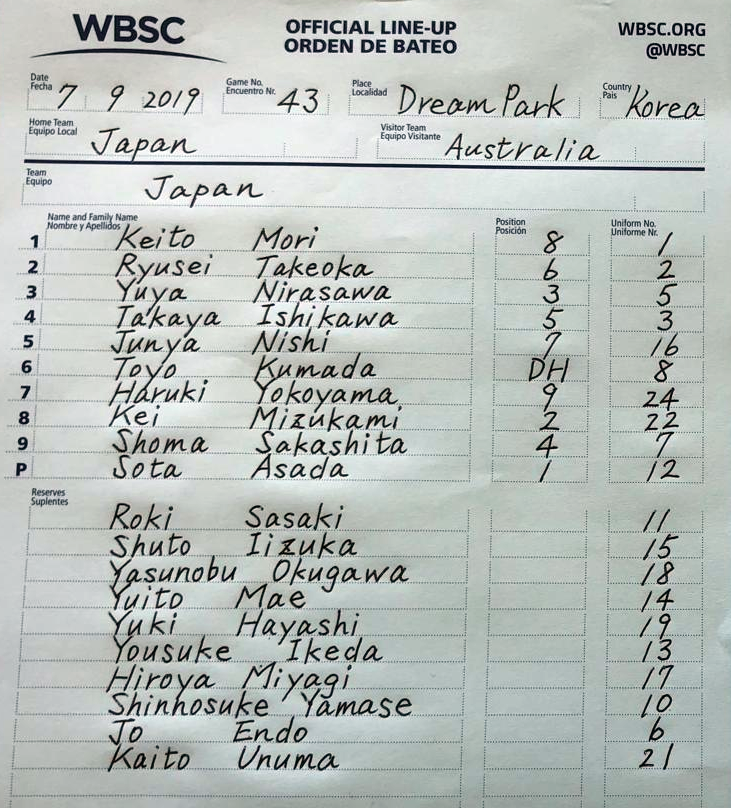 WBSC OFFICIAL LINE-UP WBSC.ORG
ORDEN DE BATEO @WBSC
Date Fecha 7 9 2019 Game No. Encuentro Nr. 43 Place Localidad Dream Park Country Pais Korea
Home Team Equipo Local Japan Visitor Team Equipo Visitante Australia
Team Equipo Japan
Name and Family Name Nombre y Apellidos Position Posición Uniform No. Uniforme Nr.
1 Keito Mori 8 1
2 Ryusei Takeoka 6 2
3 Yuya Nirasawa 3 5
4 Takaya Ishikawa 5 3
5 Junya Nishi 7 16
6 Toyo Kumada DH 8
7 Haruki Yokoyama 9 24
8 Kei Mizukami 2 22
9 Shoma Sakashita 4 7
P Sota Asada 1 12
Reserves Suplentes
Roki Sasaki 11
Shuto Iizuka 15
Yasunobu Okugawa 18
Yuito Mae 14
Yuki Hayashi 19
Yousuke Ikeda 13
Hiroya Miyagi 17
Shinnosuke Yamase 10
Jo Endo 6
Kaito Unuma 21